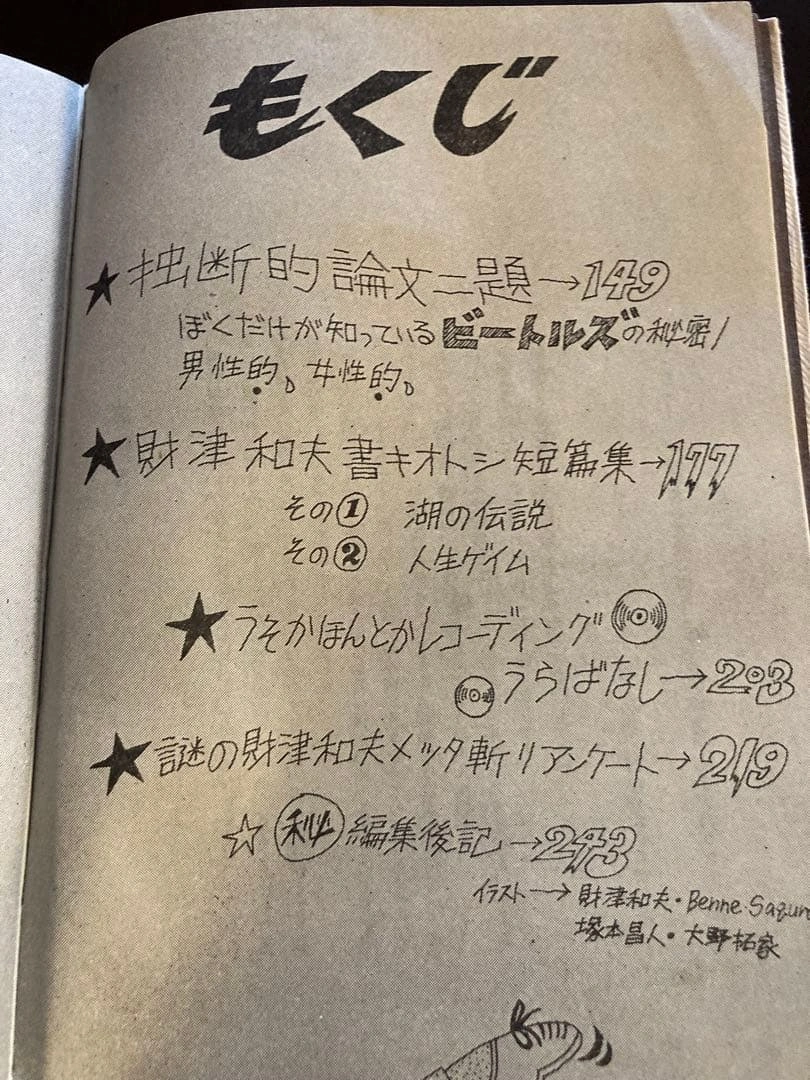 もくじ
★独断的論文二題→149
ぼくだけが知っているビートルズの秘密/
男性的。女性的。
★財津和夫書キオトシ短篇集→177
その① 湖の伝説
その② 人生ゲイム
★うそかほんとかレコーディング
うらばなし→203
★謎の財津和夫メッタ斬リアンケート→219
☆㊙編集後記→243
イラスト→財津和夫・Benne.
塚本昌人・大野拓家